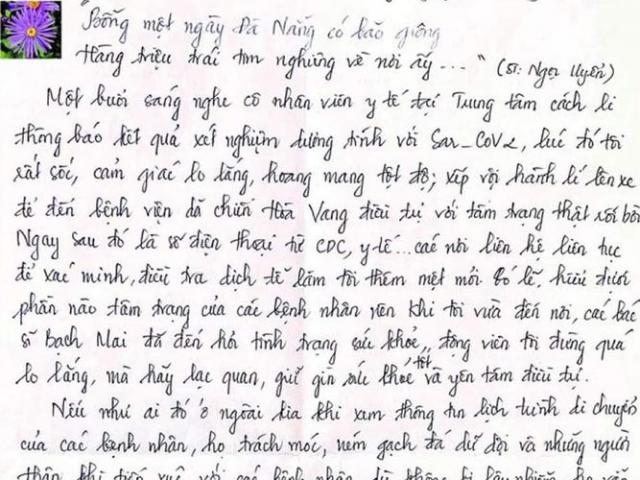 "Bỗng một ngày Đà Nẵng có bão giông
Hàng triệu trái tim nghiêng về nơi ấy..." (St: Ngọc Uyển)
Một buổi sáng nghe cô nhân viên y tế tại Trung tâm cách li
thông báo kết quả xét nghiệm dương tính với Sar_CoV2, lúc đó tôi
rất sốc, cảm giác lo lắng, hoang mang tột độ; xếp vội hành lí lên xe
để đến bệnh viện dã chiến Hòa Vang điều trị với tâm trạng thật rối bời
Ngay sau đó là số điện thoại từ CDC, y tế... các nơi liên hệ liên tục
để xác minh, điều tra dịch tễ làm tôi thêm mệt mỏi. Có lẽ, hiểu được
phần nào tâm trạng của các bệnh nhân nên khi tôi vừa đến nơi, các bác
sĩ Bạch Mai đã đến hỏi tình trạng sức khỏe, động viên tôi đừng quá
lo lắng, mà hãy lạc quan, giữ gìn sức khỏe tốt và yên tâm điều trị.
Nếu như ai đó ở ngoài kia khi xem thông tin lịch trình di chuyển
của các bệnh nhân, họ trách móc, ném gạch đá dữ dội và những người
thân khi tiếp xúc với các bệnh nhân dù không bị lây nhiễm họ vẫn